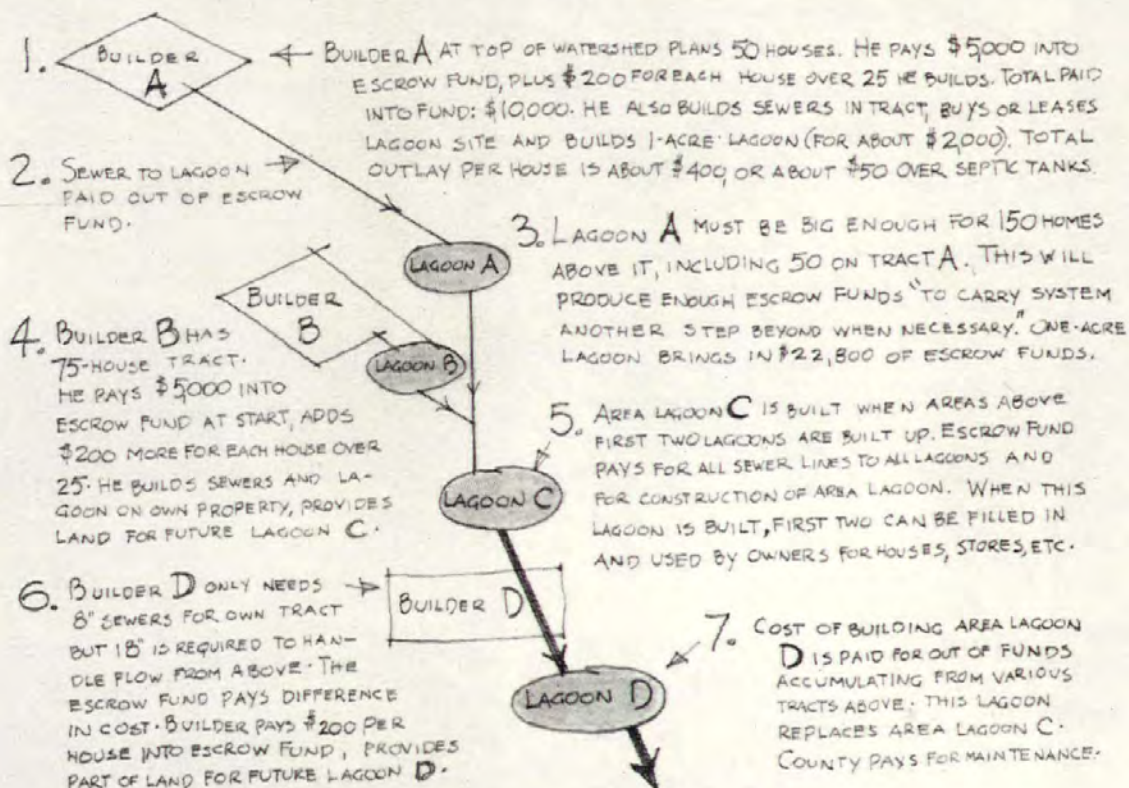 1.
BUILDER
A
BUILDER A AT TOP OF WATERSHED PLANS 50 HOUSES. HE PAYS $5,000 INTO
ESCROW FUND, PLUS $200 FOR EACH HOUSE OVER 25 HE BUILDS. TOTAL PAID
INTO FUND: $10,000. HE ALSO BUILDS SEWERS IN TRACT, BUYS OR LEASES
LAGOON SITE AND BUILDS 1-ACRE LAGOON (FOR ABOUT $2,000). TOTAL
OUTLAY PER HOUSE IS ABOUT $400, OR ABOUT $50 OVER SEPTIC TANKS.
2. SEWER TO LAGOON
PAID OUT OF ESCROW
FUND.
LAGOON A
3. LAGOON A MUST BE BIG ENOUGH FOR 150 HOMES
ABOVE IT, INCLUDING 50 ON TRACT A. THIS WILL
PRODUCE ENOUGH ESCROW FUNDS "TO CARRY SYSTEM
ANOTHER STEP BEYOND WHEN NECESSARY." ONE-ACRE
LAGOON BRINGS IN $22,800 OF ESCROW FUNDS.
BUILDER
B
LAGOON B
4. BUILDER B HAS
75-HOUSE TRACT.
HE PAYS $5,000 INTO
ESCROW FUND AT START, ADDS
$200 MORE FOR EACH HOUSE OVER
25. HE BUILDS SEWERS AND LA-
GOON ON OWN PROPERTY, PROVIDES
LAND FOR FUTURE LAGOON C.
LAGOON C
5. AREA LAGOON C IS BUILT WHEN AREAS ABOVE
FIRST TWO LAGOONS ARE BUILT UP. ESCROW FUND
PAYS FOR ALL SEWER LINES TO ALL LAGOONS AND
FOR CONSTRUCTION OF AREA LAGOON. WHEN THIS
LAGOON IS BUILT, FIRST TWO CAN BE FILLED IN
AND USED BY OWNERS FOR HOUSES, STORES, ETC.
6. BUILDER D ONLY NEEDS
8" SEWERS FOR OWN TRACT
BUT 18" IS REQUIRED TO HAN-
DLE FLOW FROM ABOVE. THE
ESCROW FUND PAYS DIFFERENCE
IN COST. BUILDER PAYS $200 PER
HOUSE INTO ESCROW FUND, PROVIDES
PART OF LAND FOR FUTURE LAGOON D.
BUILDER D
LAGOON D
7. COST OF BUILDING AREA LAGOON
D IS PAID FOR OUT OF FUNDS
ACCUMULATING FROM VARIOUS
TRACTS ABOVE. THIS LAGOON
REPLACES AREA LAGOON C.
COUNTY PAYS FOR MAINTENANCE.